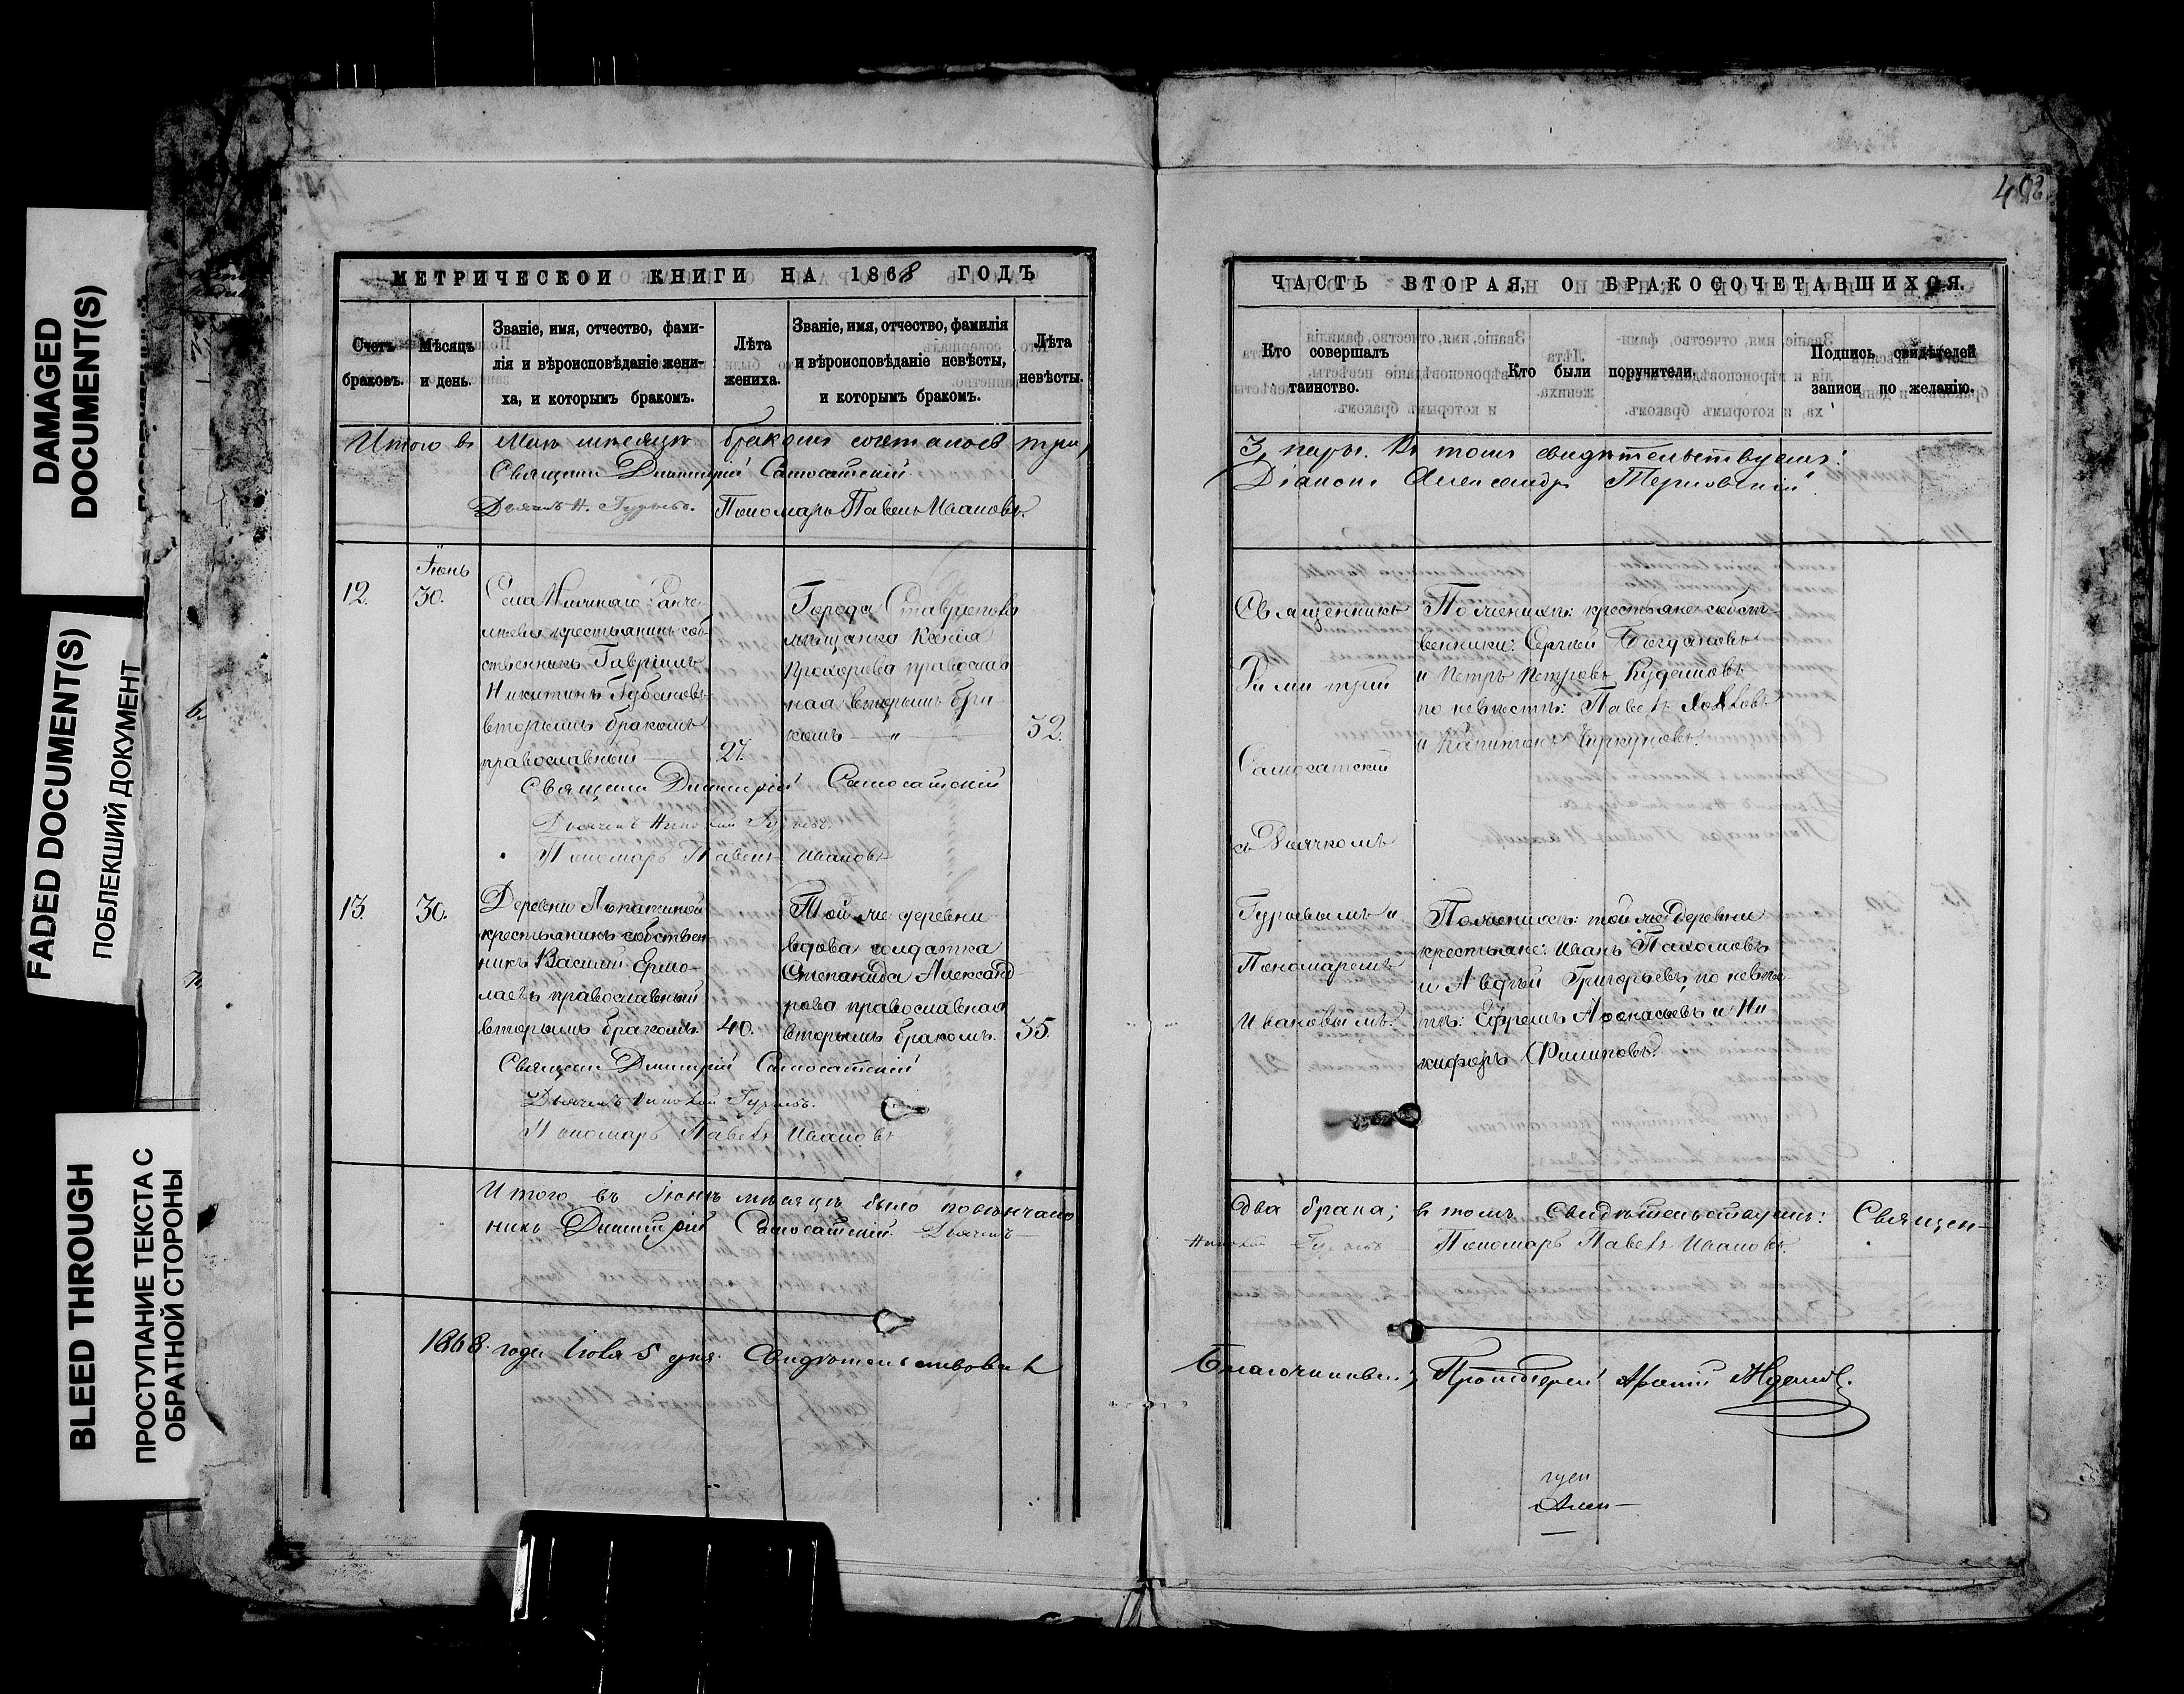 DAMAGED
DOCUMENT(S)
FADED DOCUMENT(S)
ПОБЛЕКШИЙ ДОКУМЕНТ
BLEED THROUGH
ПРОСТУПАНИЕ ТЕКСТА С
ОБРАТНОЙ СТОРОНЫ
МЕТРИЧЕСКОЙ КНИГИ НА 1868 ГОДЪ
Счетъ
браковъ.
Мѣсяцъ
и день.
Званіе, имя, отчество, фами-
лія и вѣроисповѣданіе жени-
ха, и которымъ бракомъ.
Лѣта
жениха.
Званіе, имя, отчество, фамилія
и вѣроисповѣданіе невѣсты,
и которымъ бракомъ.
Лѣта
невѣсты.
Итого въ Маѣ мѣсяцѣ бракомъ сочеталось три,
Священн. Димитрій Самосатскій
Дьячекъ Н. Гурьевъ. Пономарь Павелъ Ивановъ.
12.
Іюнь
30.
Села
крестьянинъ соб-
ственникъ Гавріилъ
Никитинъ
вторымъ бракомъ
православный
27.
Города Ставрополя
мѣщанка Ксенія
Прохорова православ
ная вторымъ бра-
комъ — „ —
32.
Священн. Димитрій Самосатскій
Дьячекъ Николай Гурьевъ.
Пономарь Павелъ Ивановъ
13.
30.
Деревни Лопатиной
крестьянинъ собствен
никъ Василій Ермо-
лаевъ православный
вторымъ бракомъ.
40.
Той же деревни
вдова солдатка
Степанида Александ
рова православная
вторымъ бракомъ.
35.
Священн. Димитрій Самосатскій
Дьячекъ Николай Гурьевъ.
Пономарь Павелъ Ивановъ
Итого въ Іюнѣ мѣсяцѣ было повѣнчано
никъ Димитрій Самосатскій. Дьячекъ
1868 года Іюля 5 дня. Свидѣтельствовалъ
402
ЧАСТЬ ВТОРАЯ, О БРАКОСОЧЕТАВШИХСЯ.
Кто совершалъ
таинство.
Кто были поручители.
Подпись свидѣтелей
записи по желанію.
3, пары. Въ томъ свидѣтельствуемъ:
Діаконъ Александръ Терновскій
Священникъ
Димитрій
Самосатскій
съ Дьячкомъ
Гурьевымъ и
Пономаремъ
Ивановымъ.
По женихѣ: крестьяне собст-
венники: Сергѣй Богдановъ
и Петръ Петровъ Кудашовъ
по невѣстѣ: Павелъ
и Капитонъ
По женихѣ: той же деревни
крестьяне: Иванъ Пахомовъ
и Авдѣй Григорьевъ, по невѣс
тѣ: Ефремъ Аѳонасьевъ и Ни
кифоръ Филиповъ.
два брака; въ томъ свидѣтельствуемъ: Священ-
Николай Гурьевъ Пономарь Павелъ Ивановъ.
Благочинный, Протоіерей